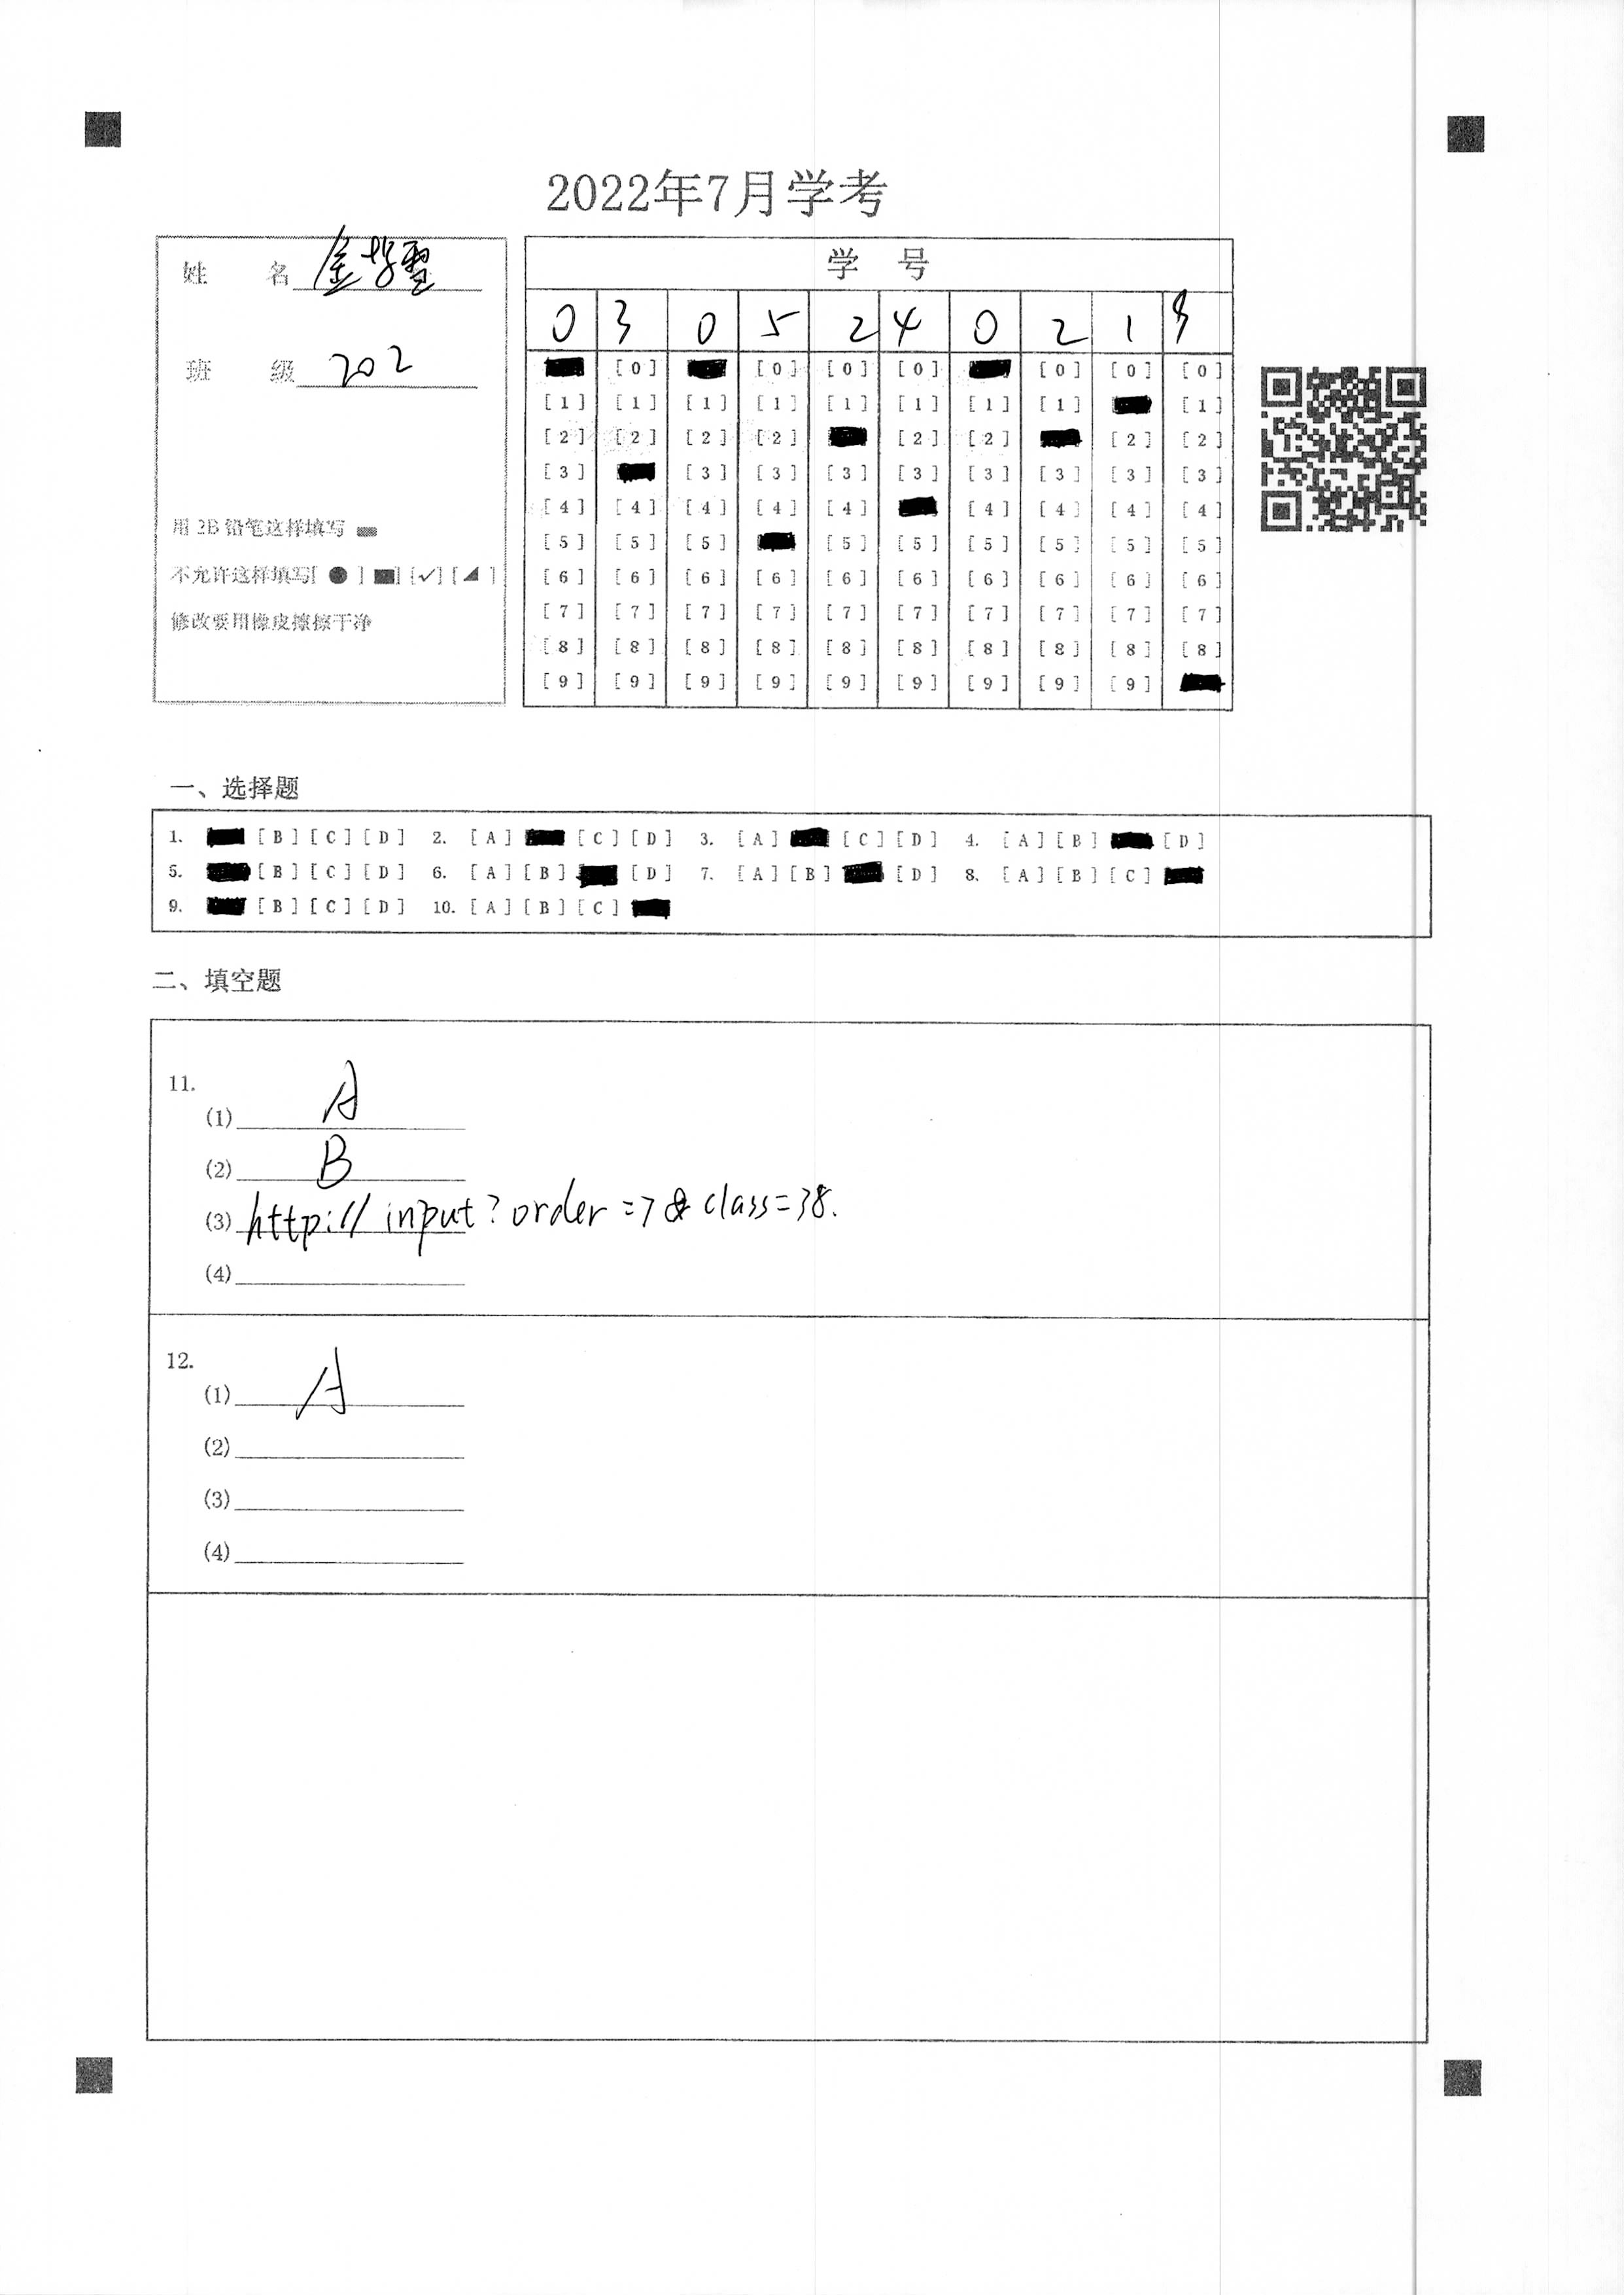 2022年7月学考
姓 名 金
班 级 202
用 2B 铅笔这样填写
不允许这样填写[ ● ] [■] [✓] [◢ ]
修改要用橡皮擦擦干净
学 号
0 3 0 5 2 4 0 2 1 9
[0] [0] [0] [0] [0] [0] [0]
[1] [1] [1] [1] [1] [1] [1] [1] [1]
[2] [2] [2] [2] [2] [2] [2] [2]
[3] [3] [3] [3] [3] [3] [3] [3] [3]
[4] [4] [4] [4] [4] [4] [4] [4] [4]
[5] [5] [5] [5] [5] [5] [5] [5] [5]
[6] [6] [6] [6] [6] [6] [6] [6] [6] [6]
[7] [7] [7] [7] [7] [7] [7] [7] [7] [7]
[8] [8] [8] [8] [8] [8] [8] [8] [8] [8]
[9] [9] [9] [9] [9] [9] [9] [9] [9]
一、选择题
1. [B] [C] [D] 2. [A] [C] [D] 3. [A] [C] [D] 4. [A] [B] [D]
5. [B] [C] [D] 6. [A] [B] [D] 7. [A] [B] [D] 8. [A] [B] [C]
9. [B] [C] [D] 10. [A] [B] [C]
二、填空题
11.
(1) A
(2) B
(3) http:// input?order=7&class=38.
(4)
12.
(1) A
(2)
(3)
(4)